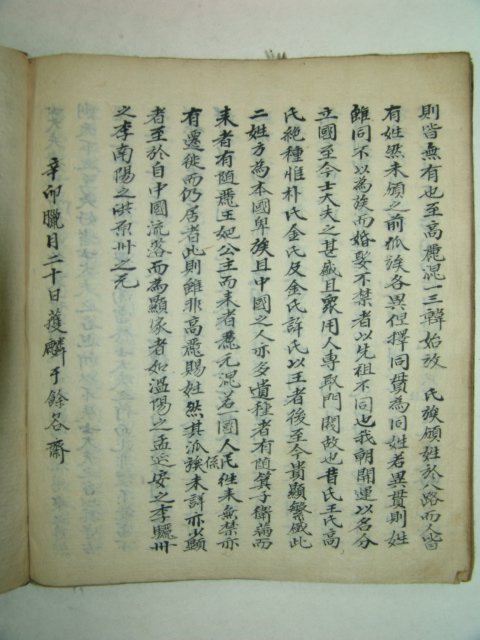 則皆無有也至高麗混一三韓始放 氏族頒姓於八路而人皆
有姓然未頒之前派族各異但擇同貫為同姓若異貫則姓
雖同不以為族而婚娶不禁者以先祖不同也我朝開運以名分
立國至今士大夫之甚盛且衆用人專取門閥故也昔氏王氏高
氏絶種惟朴氏金氏及金氏許氏以王者後至今貴顯繁盛此
二姓方為本國卑族且中國之人亦多遺種者有随箕子衛滿而
来者有随麗王妃公主而来者麗元混若國人民係往来無禁亦
有遷徙而仍居者此則雖非高麗賜姓然其派族未詳亦出顯
者至於自中國流落而為顯家者如溫陽之孟延安之李驪州
之李南陽之洪原州之元
辛卯臘月二十日獲麟于餘各齋